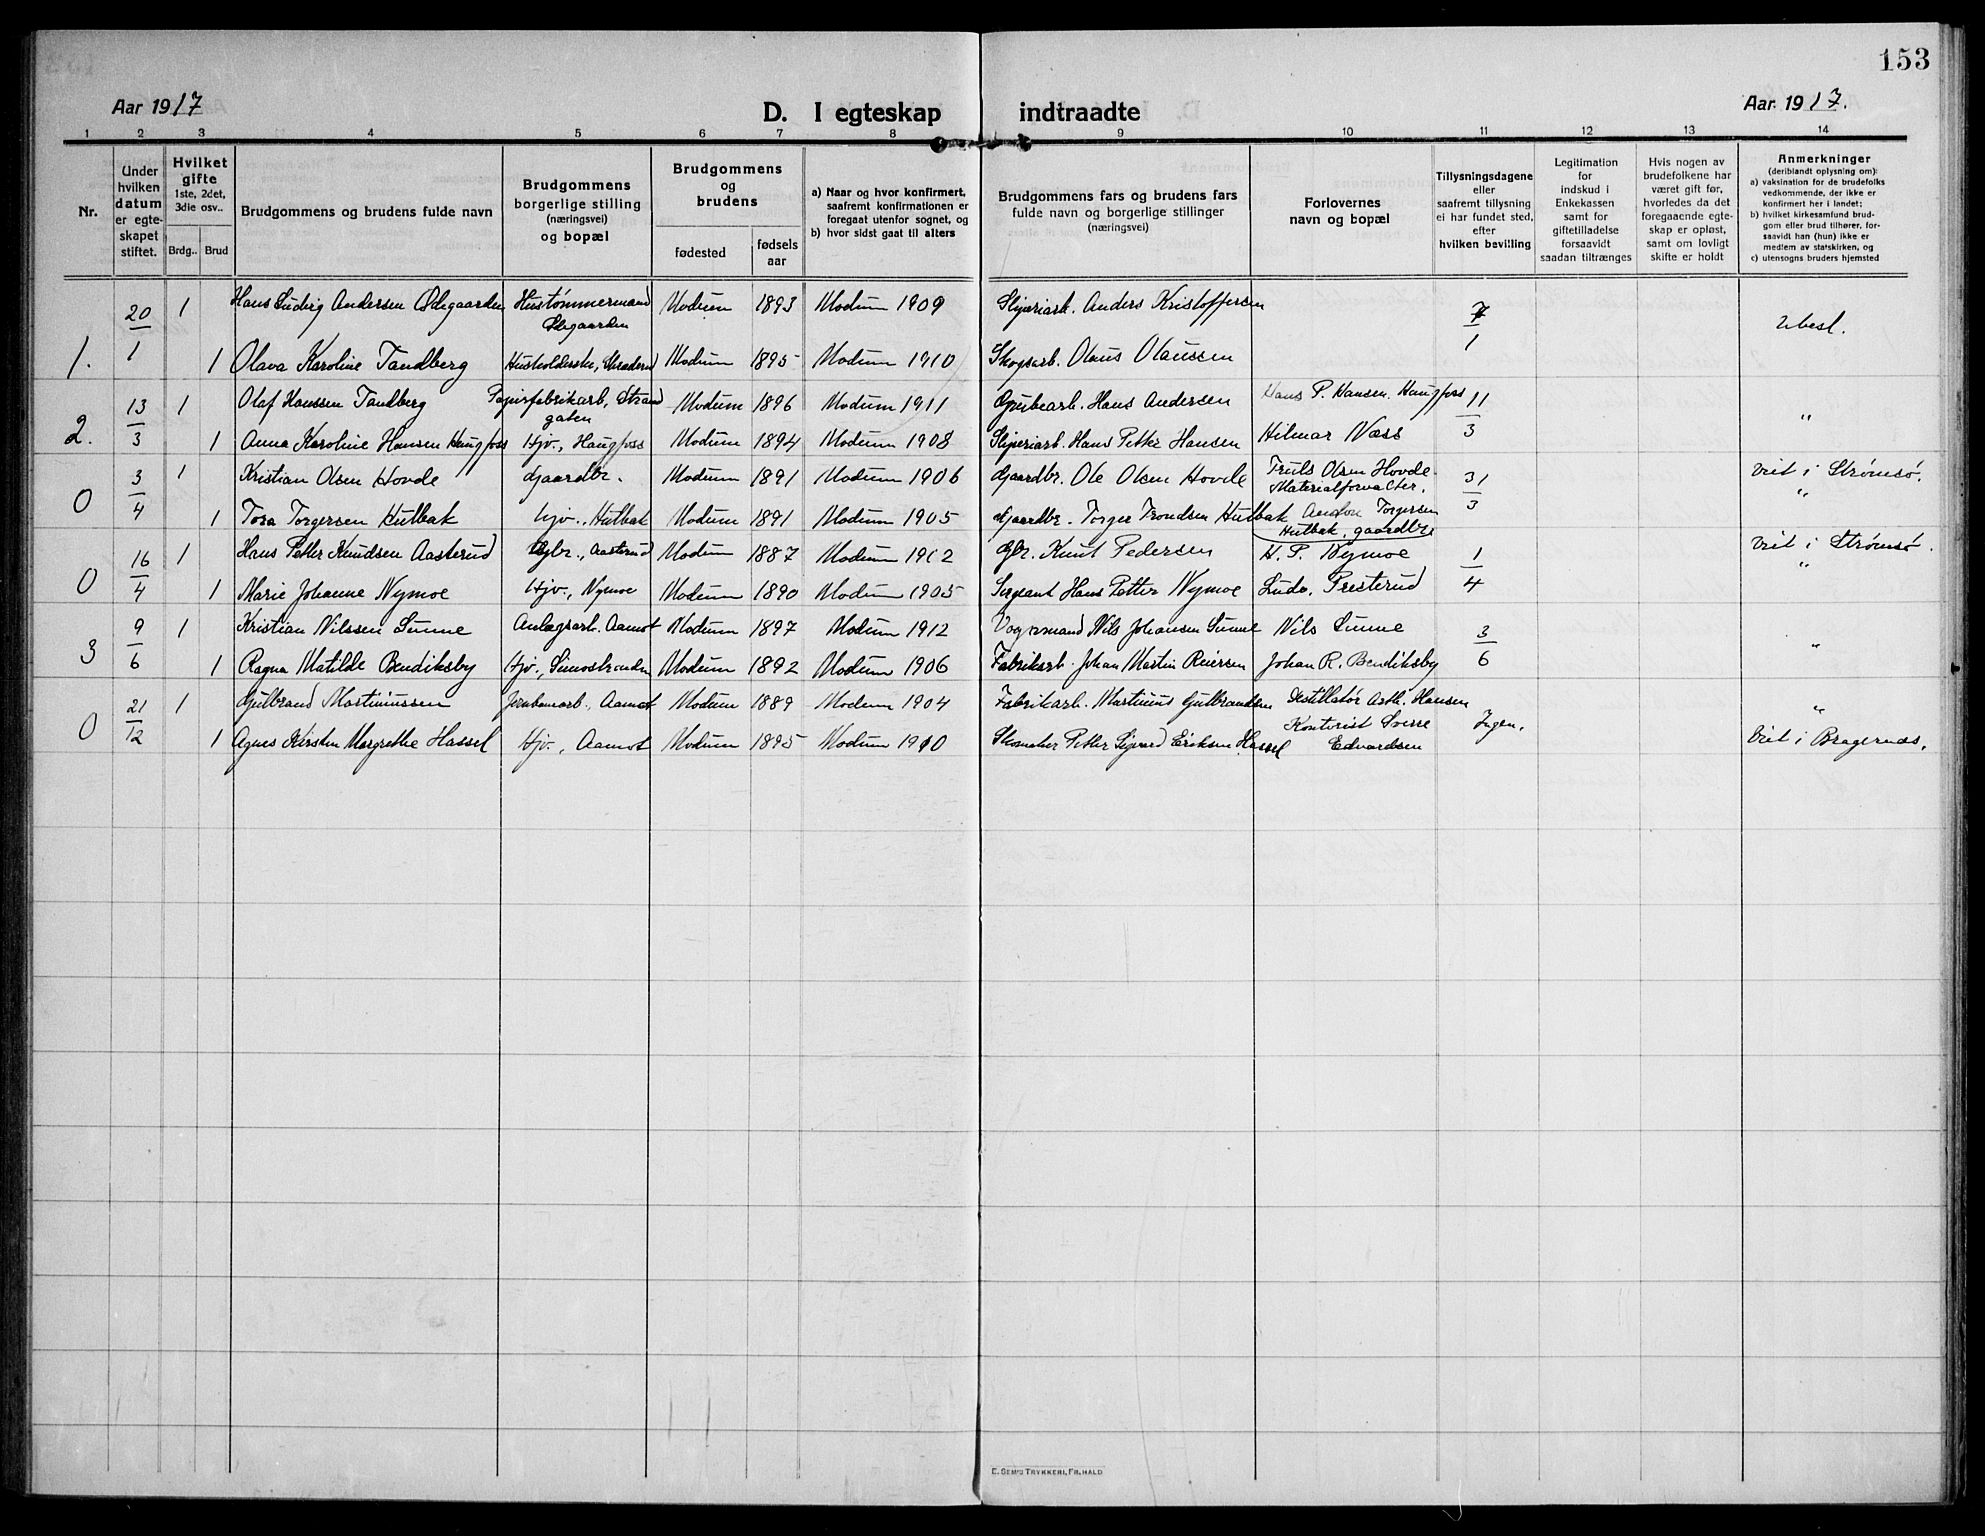 153
Aar 1917
D. I egteskap indtraadte
Aar 1917.
1 2 3 4 5 6 7 8 9 10 11 12 13 14
Nr.
Under hvilken datum er egte-skapet stiftet.
Hvilket gifte 1ste, 2det, 3die osv..
Brdg.. Brud
Brudgommens og brudens fulde navn
Brudgommens borgerlige stilling (næringsvei) og bopæl
Brudgommens og brudens
fødested
fødsels aar
a) Naar og hvor konfirmert, saafremt konfirmationen er foregaat utenfor sognet, og
b) hvor sidst gaat til alters
Brudgommens fars og brudens fars fulde navn og borgerlige stillinger (næringsvei)
Forlovernes navn og bopæl
Tillysningsdagene eller saafremt tillysning ei har fundet sted, efter hvilken bevilling
Legitimation for indskud i Enkekassen samt for giftetilladelse forsaavidt saadan tiltrænges
Hvis nogen av brudefolkene har været gift før, hvorledes da det foregaaende egte-skap er opløst, samt om lovligt skifte er holdt
Anmerkninger (deriblandt oplysning om):
a) vaksination for de brudefolks vedkommende, der ikke er konfirmert her i landet;
b) hvilket kirkesamfund brud-gom eller brud tilhører, for-saavidt han (hun) ikke er medlem av statskirken, og
c) utensogns bruders hjemsted
20/1 1 Hans Ludvig Andersen Ødegaarden Hustømmermand Ødegaarden Modum 1893 Modum 1909 Sliperiarb. Anders Kristoffersen 7/1 Ubesl.
1. 1 Olava Karoline Tandberg Husholderske, Modum 1895 Modum 1910 Skogsarb. Olaus Olaussen
13/3 1 Olaf Hanssen Tandberg Papirfabrikarb, Strandgaten Modum 1896 Modum 1911 Grubearb. Hans Andersen Hans P. Hansen Haugfoss 11/3 "
2. 1 Anna Karoline Hansen Haugfoss Hjv., Haugfoss Modum 1894 Modum 1908 Sliperiarb. Hans Petter Hansen Hilmar Næss
3/4 1 Kristian Olsen Hovde Gaardbr. Modum 1891 Modum 1906 Gaardbr. Ole Olsen Hovde Truls Olsen Hovde Materialforvalter. 31/3 Viet i Strømsø. "
0 1 Tora Torgersen Hulbak Hjv., Hulbak Modum 1891 Modum 1905 Gaardbr. Torger Trondsen Hulbak Anton Torgersen Hulbak, gaardbr
16/4 1 Hans Petter Knudsen Aasterud Gbr., Aasterud Modum 1887 Modum 1902 Gbr. Knut Pedersen H. P. Nymoe 1/4 Viet i Strømsø. "
0 1 Marie Johanne Nymoe Hjv., Nymoe Modum 1890 Modum 1905 Sergeant Hans Petter Nymoe Ludv. Presterud
9/6 1 Kristian Nilssen Sunne Anlægsarb. Aamot Modum 1897 Modum 1912 Vognmand Nils Johansen Sunne Nils Sunne 3/6 "
3 1 Ragna Matilde Bendiksby Hjv., Simostranden Modum 1892 Modum 1906 Fabrikarb. Johan Martin Reiersen Johan R. Bendiksby
21/12 1 Gulbrand Martiniussen Jernbanearb., Aamot Modum 1889 Modum 1904 Fabrikarb. Martinius Gulbrandsen Destillatør Arth. Hansen Ingen. "
0 1 Agnes Kirsten Margrethe Hassel Hjv., Aamot Modum 1895 Modum 1910 Skomaker Petter Sigvard Eriksen Hassel Kontorist Sverre Edvardsen Viet i Bragernes.
E. SEM's TRYKKERI, FR.HALD